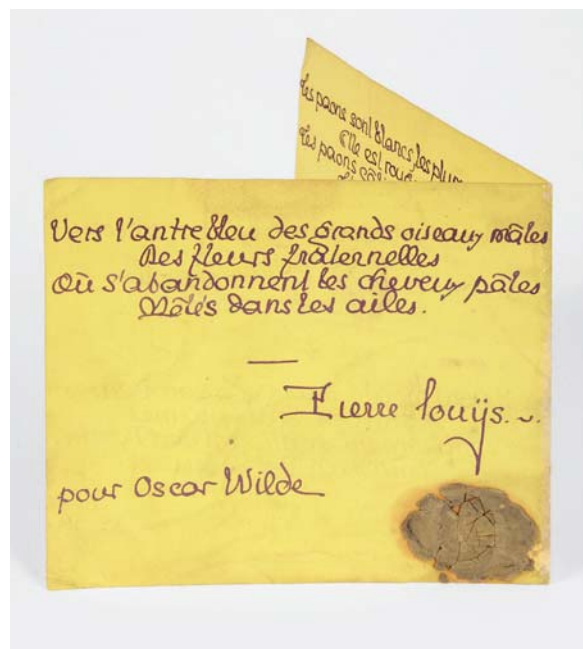 Les paons sont blancs, les plum
Elle est
les paons
Vers l'antre bleu des grands oiseaux mâles
Des fleurs fraternelles
Où s'abandonnent les cheveux pâles
Mêlés dans les ailes.
Pierre Louÿs.
pour Oscar Wilde